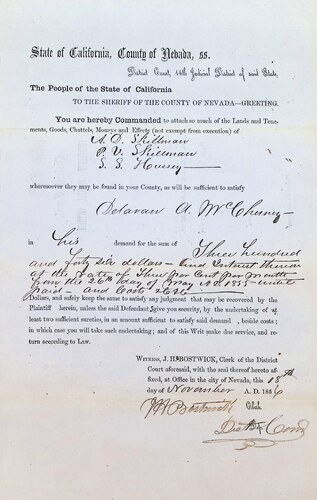 State of California, County of Nevada, ss.
District Court, 14th Judicial District of said State,
The People of the State of California
TO THE SHERIFF OF THE COUNTY OF NEVADA—GREETING.
You are hereby Commanded to attach so much of the Lands and Tene-
ments, Goods, Chattels, Moneys and Effects (not exempt from execution) of
A. D. Skillman
P. V. Skillman
S. S.
wheresoever they may be found in your County, as will be sufficient to satisfy
Delavan A. McChesney
in his demand for the sum of Three hundred
and forty six dollars — and Interest thereon
at the rate of Three per Cent per month
from the 26th day of May A.D. 1855 — until
paid — and Costs
Dollars, and safely keep the same to satisfy any judgment that may be recovered by the
Plaintiff herein, unless the said Defendant give you security, by the undertaking of at
least two sufficient sureties, in an amount sufficient to satisfy said demand , beside costs;
in which case you will take such undertaking; and of this Writ make due service, and
return according to Law.
WITNESS, J. H. BOSTWICK, Clerk of the District
Court aforesaid, with the seal thereof hereto af-
fixed, at Office in the city of Nevada, this 18th
day of November A. D. 1856
J H Bostwick Clerk
Dist Court